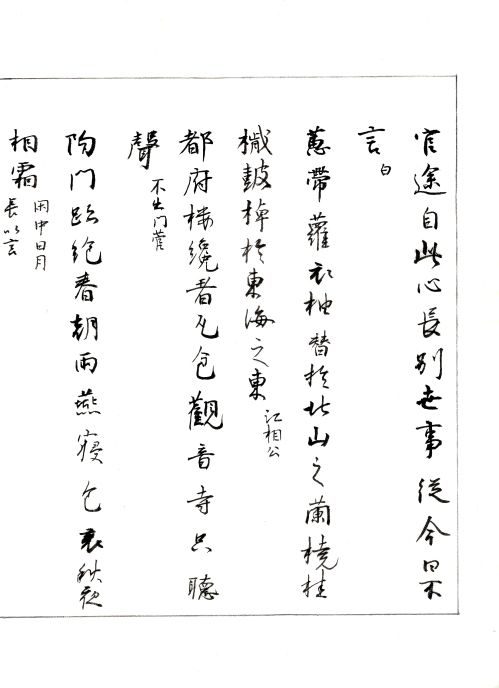 官途自此心長別世事從今口不
言 白
蕙帶蘿衣抽簪於北山之蘭橈桂
檝鼓棹於東海之東 江相公
都府楼纔看瓦色觀音寺只聴
聲 不出门菅
陶門跡絶春朝雨燕寝色衰秋夜
相霜 閑中日月
長以言